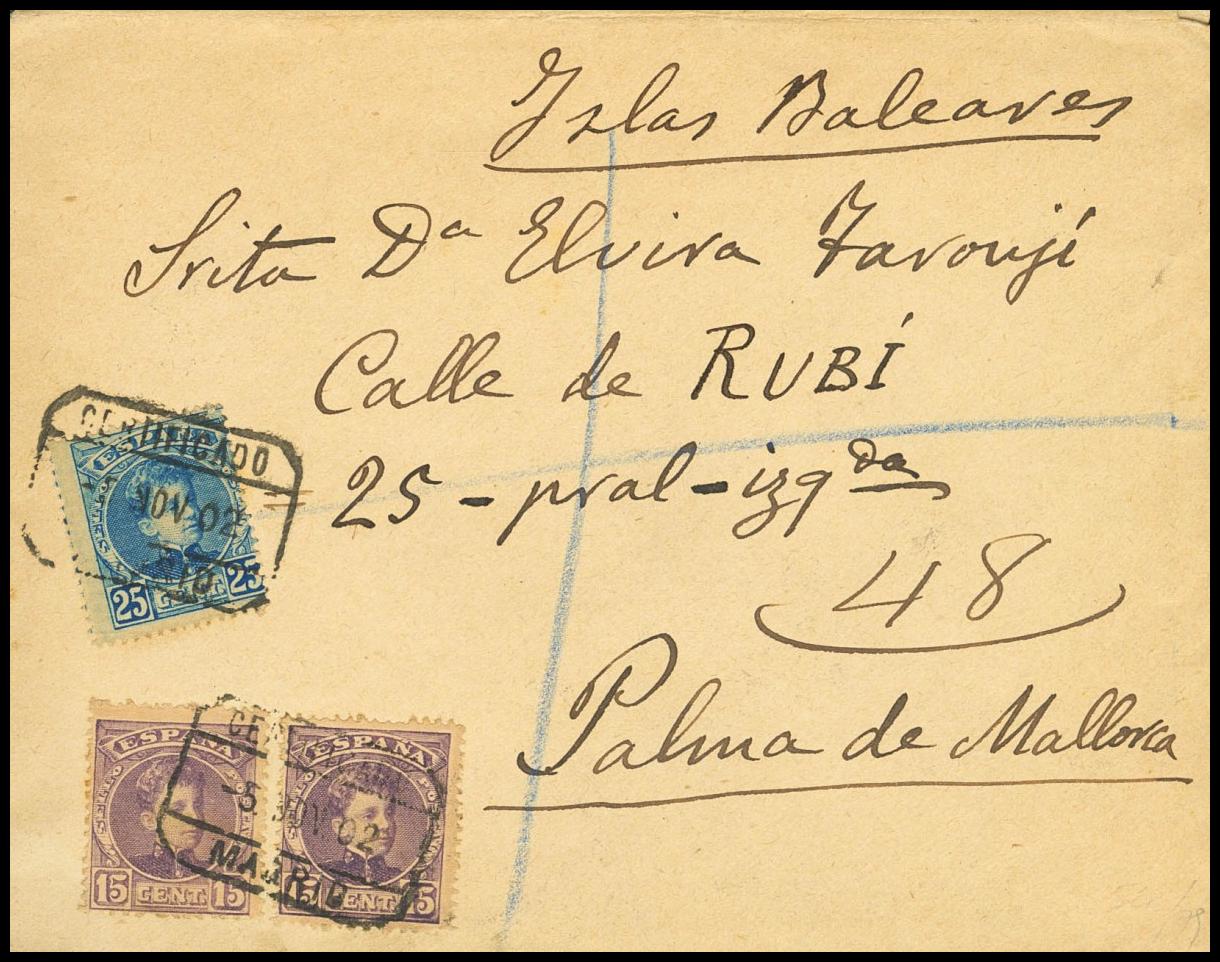 Islas Baleares
Srita Dª Elvira Tarongí
Calle de RUBÍ
25 - pral - izqda
48
Palma de Mallorca
CERTIFICADO
NOV 02
25 CENT. 25
CERTIFICADO
-5 NOV. 02
MADRID
ESPAÑA
15 CENT. 15
ESPAÑA
15 CENT. 15